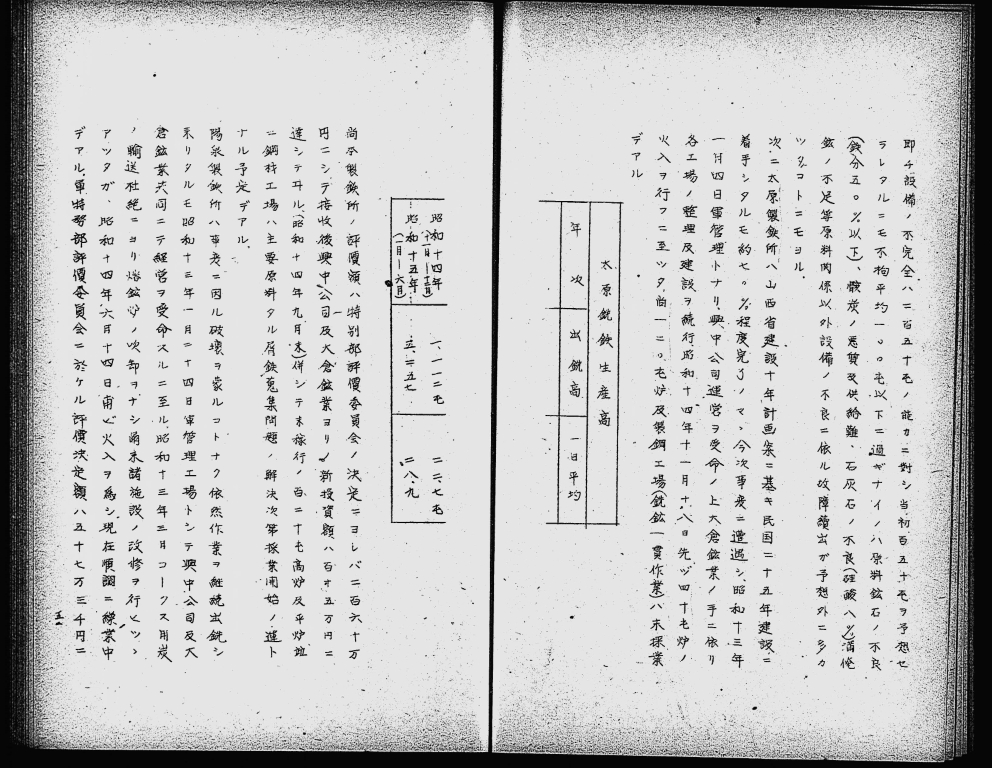 即チ設備ノ不完全ハ二百五十屯ノ能力ニ対シ当初百五十屯ヲ予想セ
ラレタルニモ不拘平均一〇〇屯以下ニ過ギナイノハ原料鉱石ノ不良
(鉄分五〇%以下)、骸炭ノ悪質及供給難、石灰石ノ不良(硅酸八%)満俺
鉱ノ不足等原料関係以外設備ノ不良ニ依ル故障續出ガ予想外ニ多カ
ツタコトニモヨル.
次ニ太原製鉄所ハ山西省建設十年計画案ニ基キ民国二十五年建設ニ
着手シタルモ約七〇%程度完了ノマヽ今次事変ニ遭遇シ、昭和十三年
一月四日軍管理トナリ興中公司運営ヲ受命ノ上大倉鉱業ノ手ニ依リ
各工場ノ整理及建設ヲ続行昭和十四年十一月十八日先ヅ四十屯炉ノ
火入ヲ行フニ至ツタ尚一二〇屯炉及製鋼工場(銑鉱一貫作業)ハ未操業
デアル
太原銑鉄生産高
年次 出銑高 一日平均
昭和十四年(十一月—十二月) 一、一一二屯 二二.七屯
昭和十五年(一月—六月) 五、二五七 二八.九
尚本製鉄所ノ評価額ハ特別部評價委員会ノ決定ニヨレバ二百六十万
円ニシテ接收後興中公司及大倉鉱業ヨリノ新投資額ハ百才五万円ニ
達シテヰル(昭和十四年九月末)併シテ未稼行ノ百二十屯高炉及平炉並
ニ鋼材工場ハ主要原料タル屑鉄蒐集問題ノ解決次第操業開始ノ運ト
ナル予定デアル.
陽泉製鉄所ハ事変ニ因ル破壊ヲ蒙ルコトナク依然作業ヲ継続出銑シ
来リタルモ昭和十三年一月二十四日軍管理工場トシテ興中公司及大
倉鉱業共同ニテ経営ヲ受命スルニ至ル昭和十三年三月コークス用炭
ノ輸送杜絶ニヨリ熔鉱炉ノ吹卸ヲナシ爾来諸施設ノ改修ヲ行ヒツヽ
アツタガ、昭和十四年六月十四日再ビ火入ヲ為シ現在順調ニ稼業中
デアル.軍特務部評價委員会ニ於ケル評價決定額ハ五十七万三千円ニ